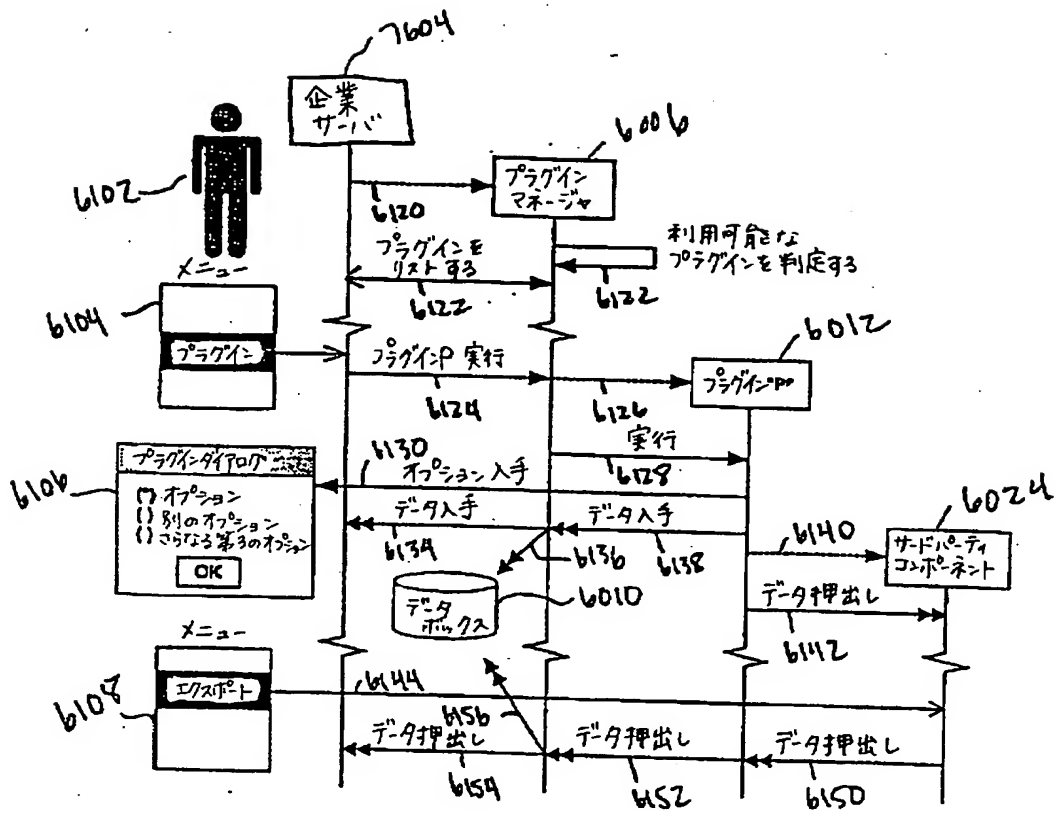 7604
企業
サーバ
6006
プラグイン
マネージャ
6102
6120
利用可能な
プラグインを判定する
6122
プラグインを
リストする
6122
メニュー
6104
プラグイン
6012
プラグインP 実行
プラグイン"P"
6124
6126
実行
6128
6130
オプション入手
プラグインダイアログ
6106
(*) オプション
( ) 別のオプション
( ) さらなる第3のオプション
OK
データ入手
データ入手
6134
6136
6138
6024
6140
サードパーティ
コンポーネント
データ
ボックス
6010
データ押出し
6142
メニュー
エクスポート
6144
6108
6156
データ押出し
データ押出し
データ押出し
6154
6152
6150